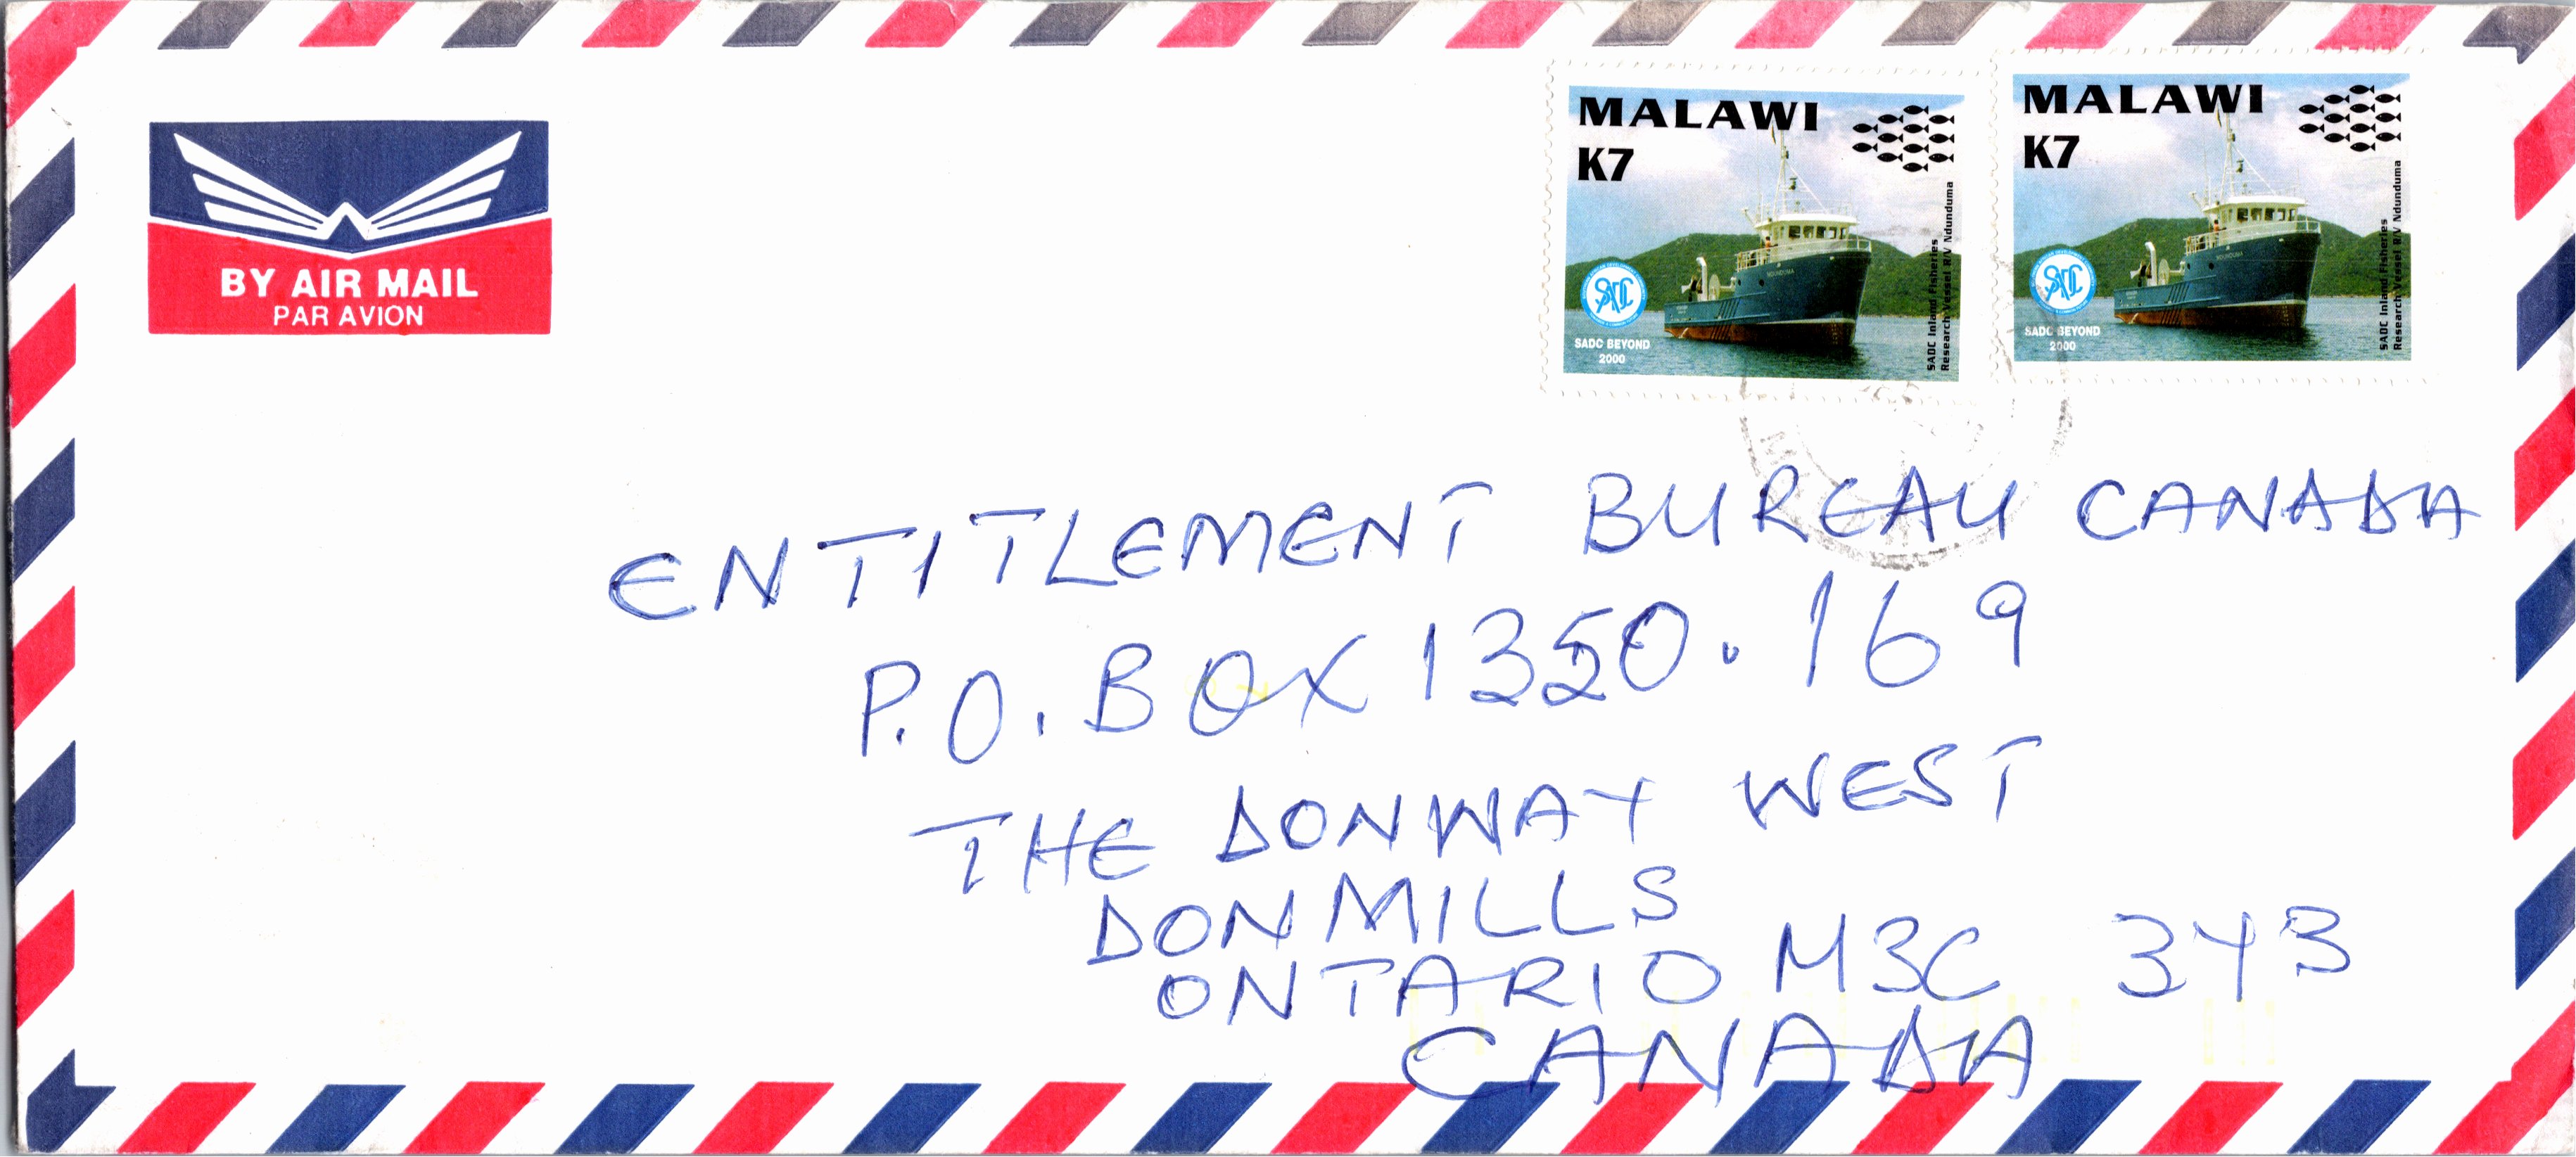 BY AIR MAIL
PAR AVION
MALAWI
K7
SADC
SADC BEYOND
2000
SADC Inland Fisheries
Research Vessel R/V Ndunduma
MALAWI
K7
SADC
SADC BEYOND
2000
SADC Inland Fisheries
Research Vessel R/V Ndunduma
ENTITLEMENT BUREAU CANADA
P.O. BOX 1350.169
THE DONWAY WEST
DON MILLS
ONTARIO M3C 3Y3
CANADA